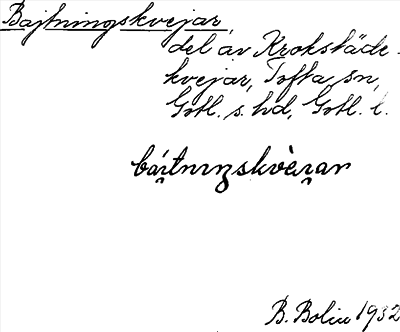 Bajtningskvejar,
del av Krokstäde-
kvejar, Tofta sn,
Gotl. s. hd, Gotl. l.
bái̯tnɪŋskvèi̯ar
B. Bolin 1932